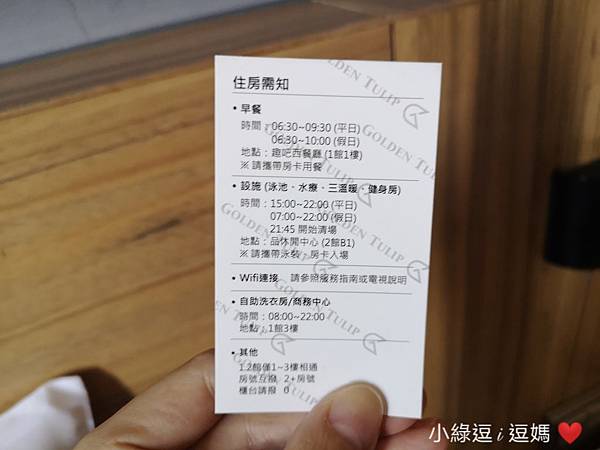 住房需知
• 早餐
時間：06:30~09:30 (平日)
06:30~10:00 (假日)
地點：趣吧西餐廳 (1館1樓)
※ 請攜帶房卡用餐
• 設施 (泳池、水療、三溫暖、健身房)
時間：15:00~22:00 (平日)
07:00~22:00 (假日)
21:45 開始清場
地點：品休閒中心 (2館B1)
※ 請攜帶泳裝、房卡入場
• Wifi連接 請參照服務指南或電視說明
• 自助洗衣房/商務中心
時間：08:00~22:00
地點：1館3樓
• 其他
1.2館僅1~3樓相通
房號互撥 2+房號
櫃台請撥 0
GOLDEN TULIP
GOLDEN TULIP
GOLDEN TULIP
GOLDEN TULIP
GOLDEN TULIP
小綠逗 i 逗媽 ❤